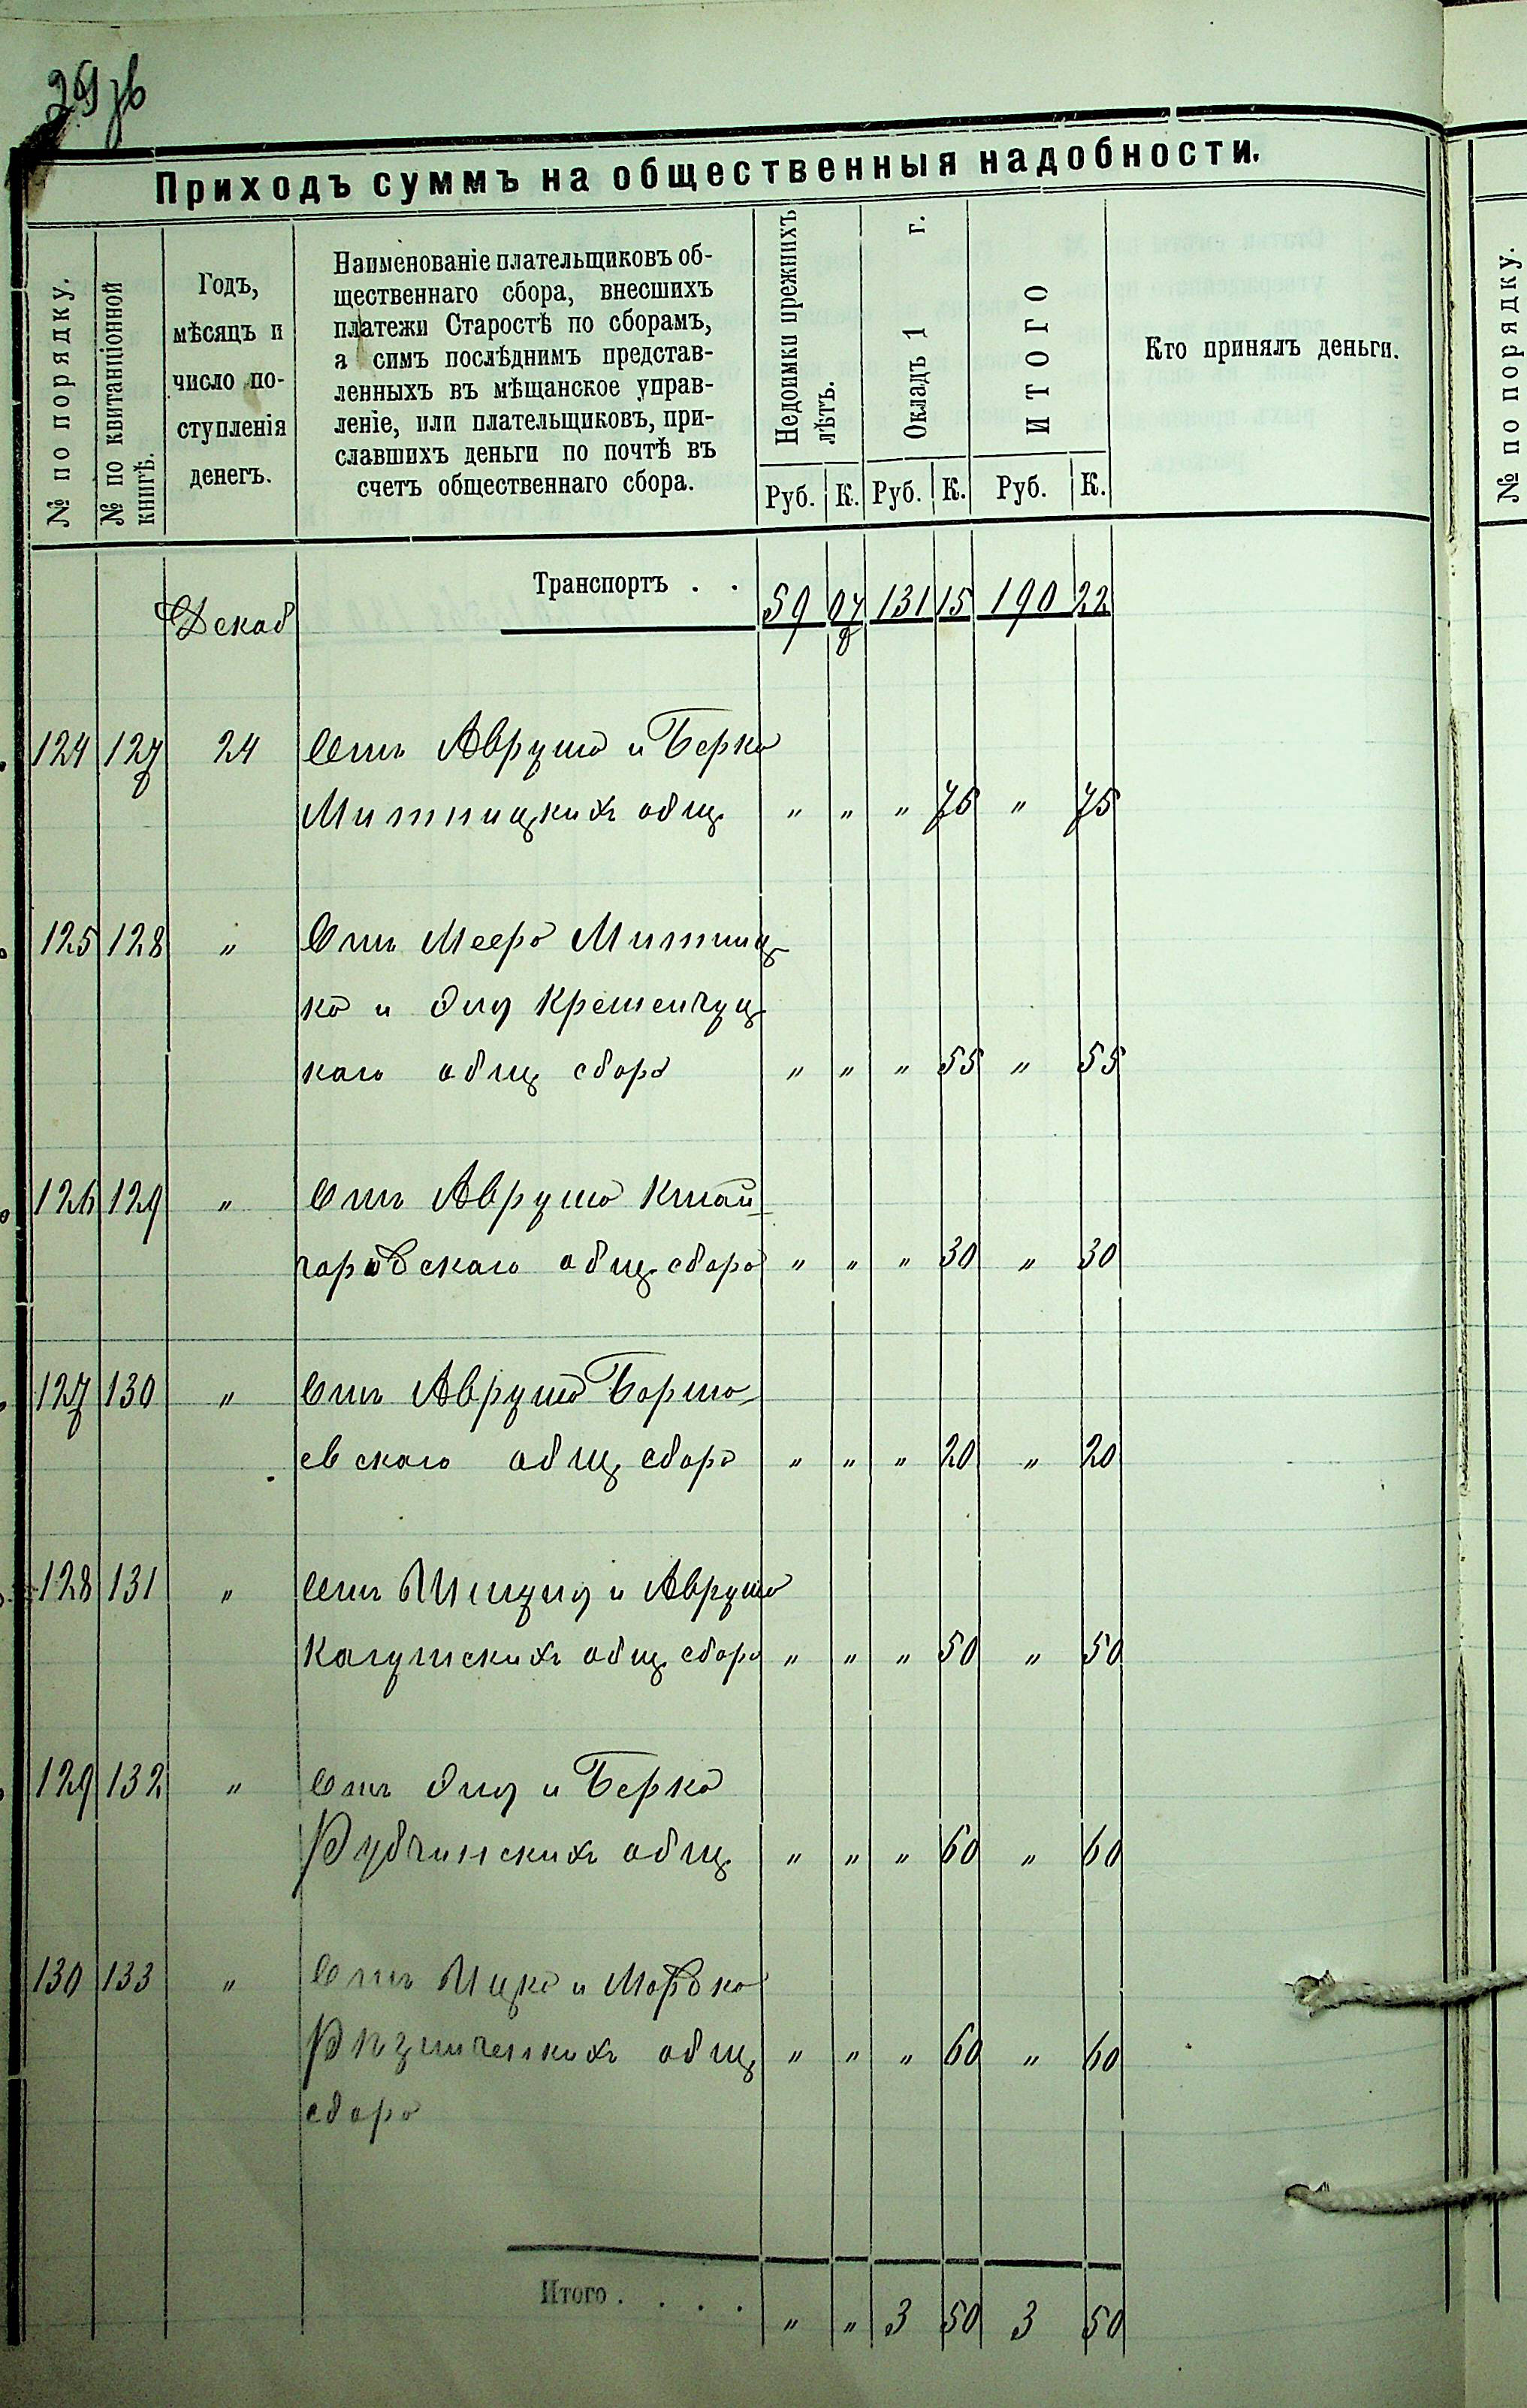 29 об
Приходъ суммъ на общественныя надобности.
№ по порядку.
№ по квитанціонной
книгѣ.
Годъ,
мѣсяцъ и
число по-
ступленія
денегъ.
Наименованіе плательщиковъ об-
щественнаго сбора, внесшихъ
платежи Старостѣ по сборамъ,
а симъ послѣднимъ представ-
ленныхъ въ мѣщанское управ-
леніе, или плательщиковъ, при-
славшихъ деньги по почтѣ въ
счетъ общественнаго сбора.
Недоимки прежнихъ
лѣтъ.
Окладъ 1 г.
ИТОГО
Кто принялъ деньги.
Руб. К. Руб. К. Руб. К.
Транспортъ . . 59 07 131 15 190 22
Декаб
124 127 24 Отъ Аврума и Берка
Митницкихъ общ. " " " 75 " 75
125 128 " Отъ Меера Митниц-
ка и Эля Кременчуц-
каго общ сбора " " " 55 " 55
126 129 " Отъ Аврума Китай-
городскаго общ. сбора " " " 30 " 30
127 130 " Отъ Аврума
евскаго общ сбора " " " 20 " 20
128 131 " Отъ и Аврума
общ. сбора " " " 50 " 50
129 132 " Отъ Эля и Берка
Рубчинскихъ общ. " " " 60 " 60
130 133 " Отъ Ицка и Мордка
общ " " " 60 " 60
сбора
Итого . . . . " " 3 50 3 50
№ по порядку.